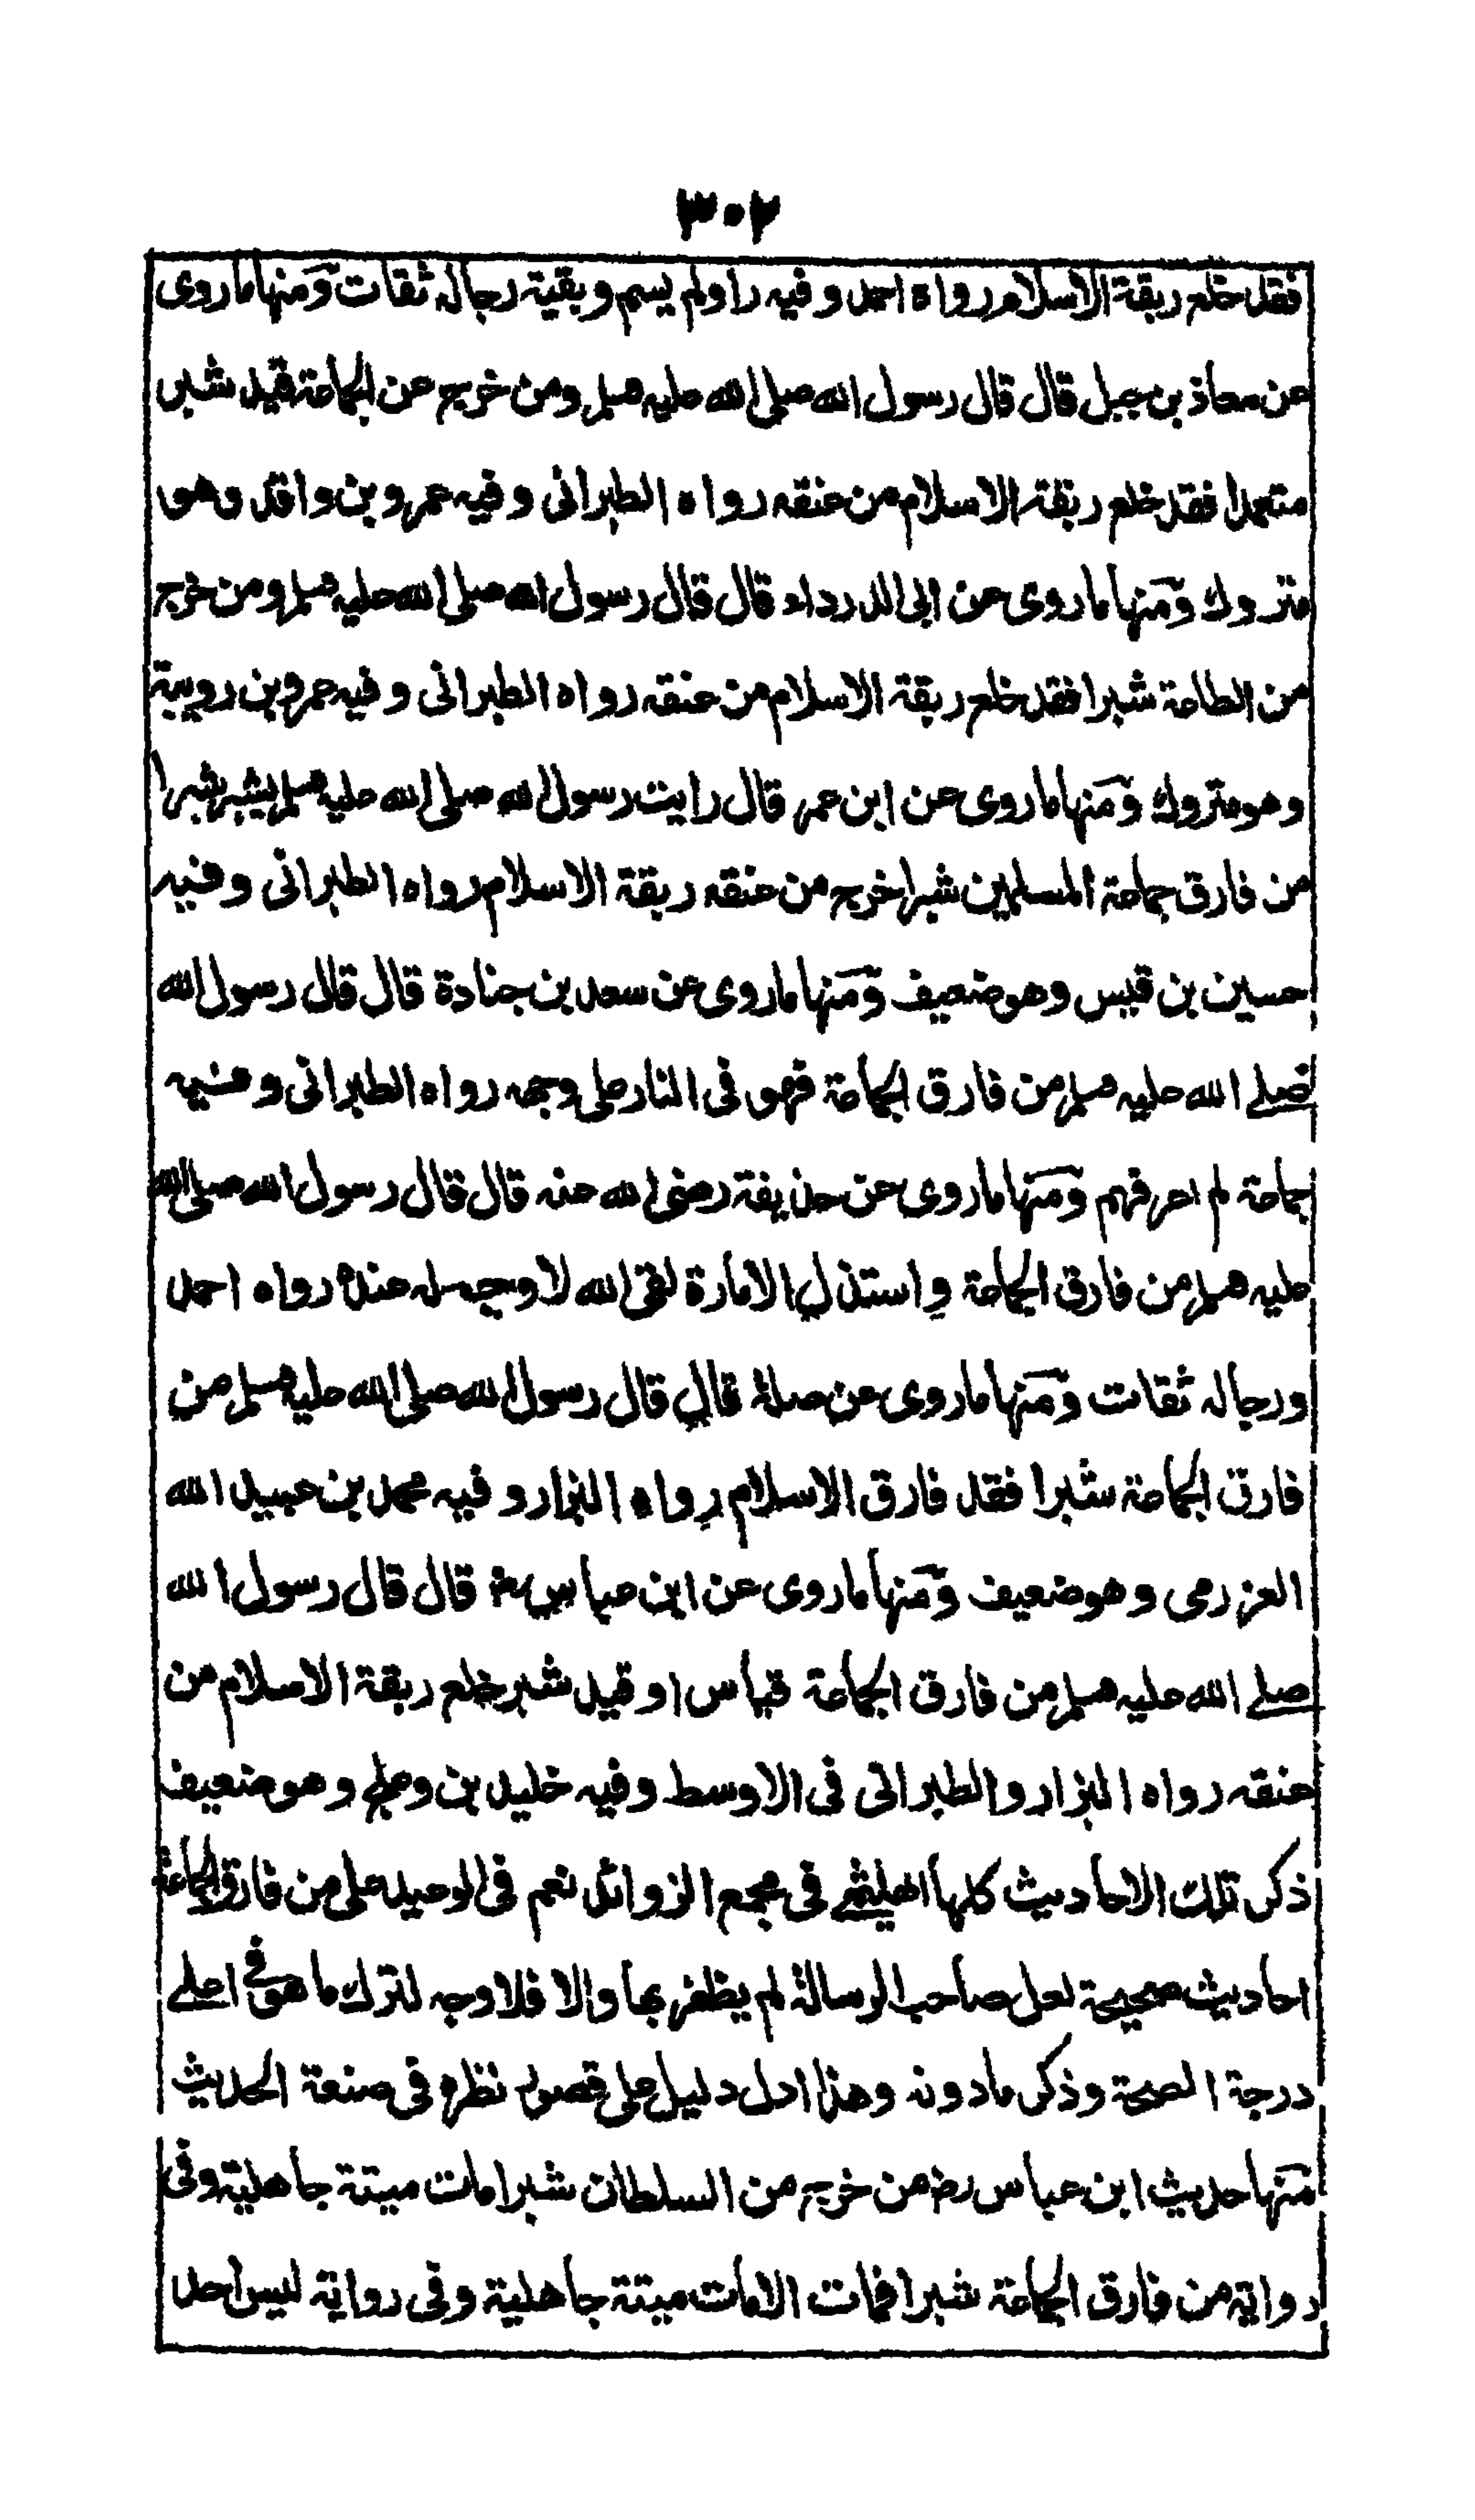 ٣٠٢
فقد خلع ربقة الاسلام رواه احمد وفيه راو لم يسم وبقية رجاله ثقات ومنها ما روى
عن معاذ بن جبل قال قال رسول الله صلى الله عليه وسلم ومن خرج عن الجماعة قيد شبر
متعمدا فقد خلع ربقة الاسلام من عنقه رواه الطبرانى وفيه عمرو بن واقد وهو
متروك ومنها ما روى عن ابى الدرداء قال قال رسول الله صلى الله عليه وسلم ومن خرج
من الطاعة شبرا فقد خلع ربقة الاسلام من عنقه رواه الطبرانى وفيه عمرو بن رويبة
وهو متروك ومنها ما روى عن ابن عمر قال رايت رسول الله صلى الله عليه وسلم يشبر شبرا
من فارق جماعة المسلمين شبرا خرج من عنقه ربقة الاسلام رواه الطبرانى وفيه
حسين بن قيس وهو ضعيف ومنها ما روى عن سعد بن جنادة قال قال رسول الله
صلى الله عليه وسلم من فارق الجماعة فهو فى النار على وجهه رواه الطبرانى وفيه
جماعة لم اعرفهم ومنها ما روى عن حذيفة رضى الله عنه قال قال رسول الله صلى الله
عليه وسلم من فارق الجماعة واستذل الامارة لقى الله لا وجه له عنده رواه احمد
ورجاله ثقات ومنها ما روى عن صلة قال قال رسول الله صلى الله عليه وسلم من
فارق الجماعة شبرا فقد فارق الاسلام رواه البزار وفيه محمد بن عبيد الله
العزرمى وهو ضعيف ومنها ما روى عن ابن عباس رض قال قال رسول الله
صلى الله عليه وسلم من فارق الجماعة قياس او قيد شبر خلع ربقة الاسلام من
عنقه رواه البزار والطبرانى فى الاوسط وفيه خليد بن دعلج وهو ضعيف
ذكر تلك الاحاديث كلها الهيثمى فى مجمع الزوائد نعم فى الوعيد على من فارق الجماعة
احاديث صحيحة لعل صاحب الرسالة لم يظفر بها والا فلا وجه لترك ما هو فى اعلى
درجة الصحة وذكر ما دونه وهذا ادل دليل على قصور نظره فى صنعة الحديث
منها حديث ابن عباس رض من خرج من السلطان شبرا مات ميتة جاهلية وفى
رواية من فارق الجماعة شبرا فمات الا مات ميتة جاهلية وفى رواية ليس احد